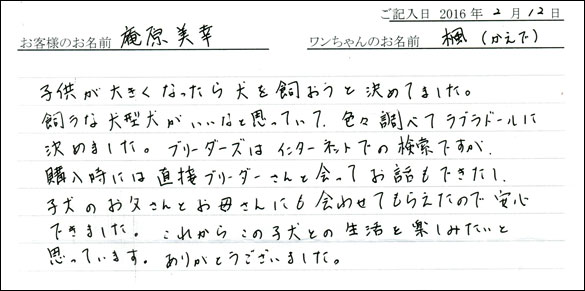 ご記入日 2016 年 2 月 12 日
お客様のお名前 庵原美幸 ワンちゃんのお名前 楓 (かえで)
子供が大きくなったら犬を飼おうと決めてました。
飼うなら大型犬がいいなと思っていて、色々調べてラブラドールに
決めました。ブリーダーズはインターネットでの検索ですが、
購入時には直接ブリーダーさんと会ってお話もできたし、
子犬のお父さんとお母さんにも会わせてもらえたので安心
できました。これからこの子犬との生活を楽しみたいと
思っています。ありがとうございました。